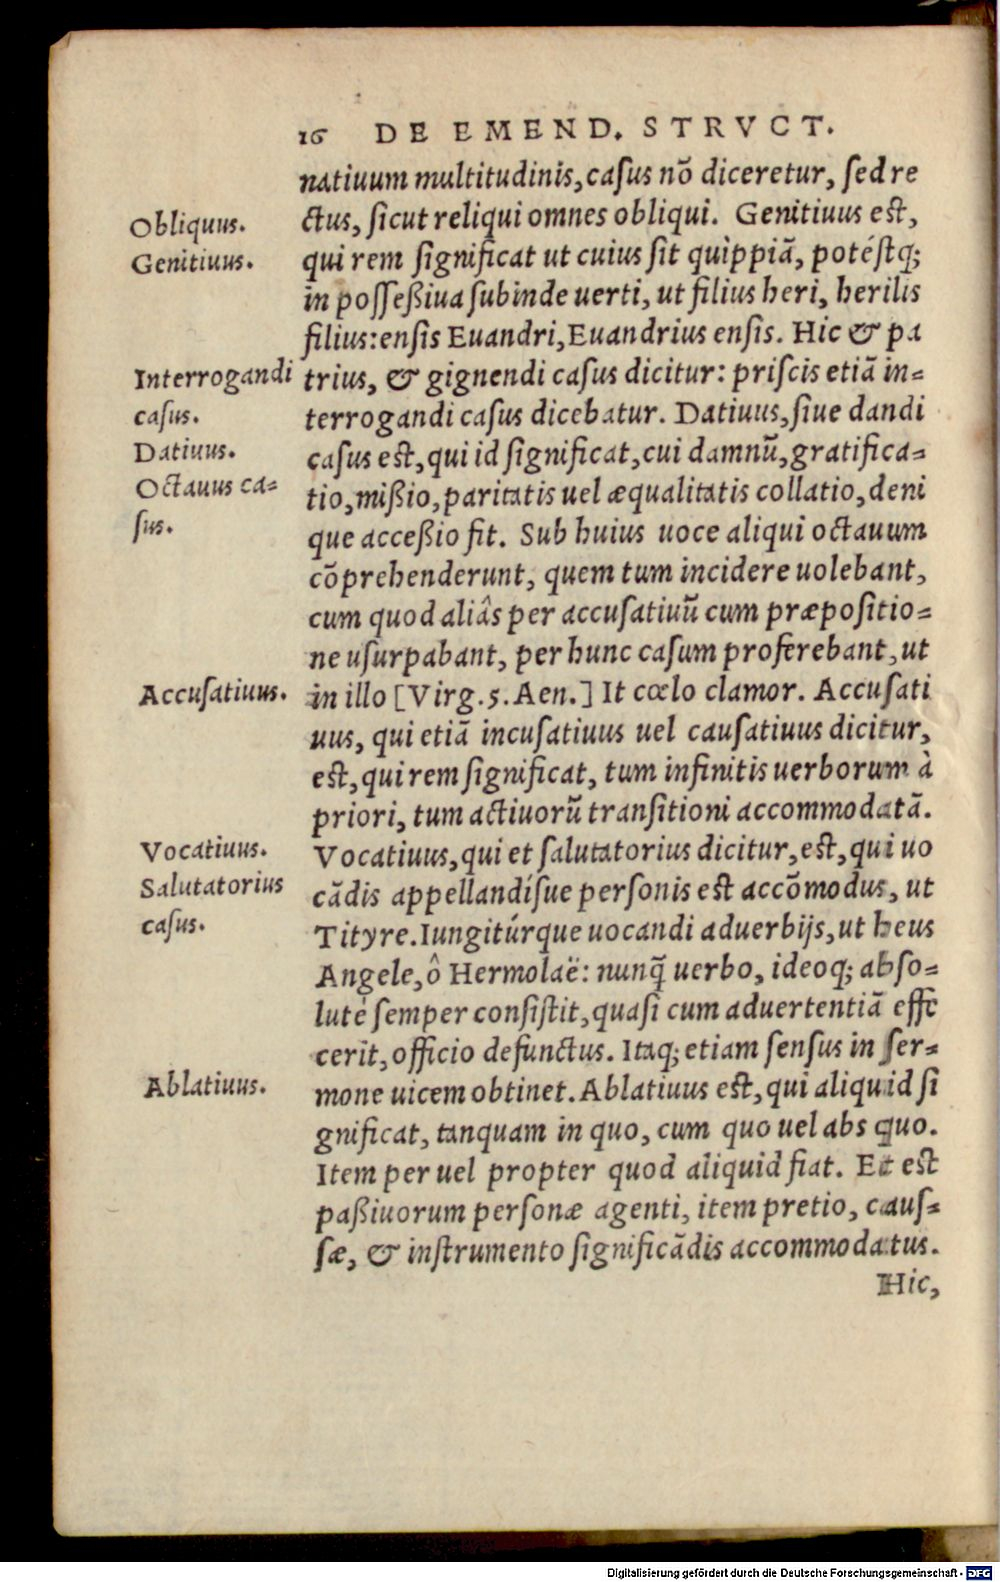 16 DE EMEND. STRVCT.
natiuum multitudinis, casus nõ diceretur, sed re
ctus, sicut reliqui omnes obliqui. Genitiuus est,
Obliquus.
qui rem significat ut cuius sit quìppiã, potéstq;
Genitiuus.
in possessiua subinde uerti, ut filius heri, herilis
filius: ensis Euandri, Euandrius ensis. Hic & pa
trius, & gignendi casus dicitur: priscis etiã in-
Interrogandi
terrogandi casus dicebatur. Datiuus, siue dandi
casus.
casus est, qui id significat, cui damnũ, gratifica-
Datiuus.
tio, missio, paritatis uel æqualitatis collatio, deni
Octauus ca-
que accessio fit. Sub huius uoce aliqui octauum
sus.
cõprehenderunt, quem tum incidere uolebant,
cum quod aliâs per accusatiuũ cum præpositio-
ne usurpabant, per hunc casum proferebant, ut
in illo [Virg. 5. Aen.] It cœlo clamor. Accusati
Accusatiuus.
uus, qui etiã incusatiuus uel causatiuus dicitur,
est, qui rem significat, tum infinitis uerborum à
priori, tum actiuorũ transitioni accommodatã.
Vocatiuus, qui et salutatorius dicitur, est, qui uo
Vocatiuus.
cãdis appellandísue personis est accõmodus, ut
Salutatorius
Tityre. Iungitúrque uocandi aduerbijs, ut heus
casus.
Angele, ô Hermolaë: nunq̃ uerbo, ideoq; abso-
luté semper consistit, quasi cum aduertentiã effe
cerit, officio defunctus. Itaq; etiam sensus in ser-
mone uicem obtinet. Ablatiuus est, qui aliquid si
Ablatiuus.
gnificat, tanquam in quo, cum quo uel abs quo.
Item per uel propter quod aliquid fiat. Et est
passiuorum personæ agenti, item pretio, caus-
sæ, & instrumento significãdis accommodatus.
Hic,
Digitalisierung gefördert durch die Deutsche Forschungsgemeinschaft - DFG